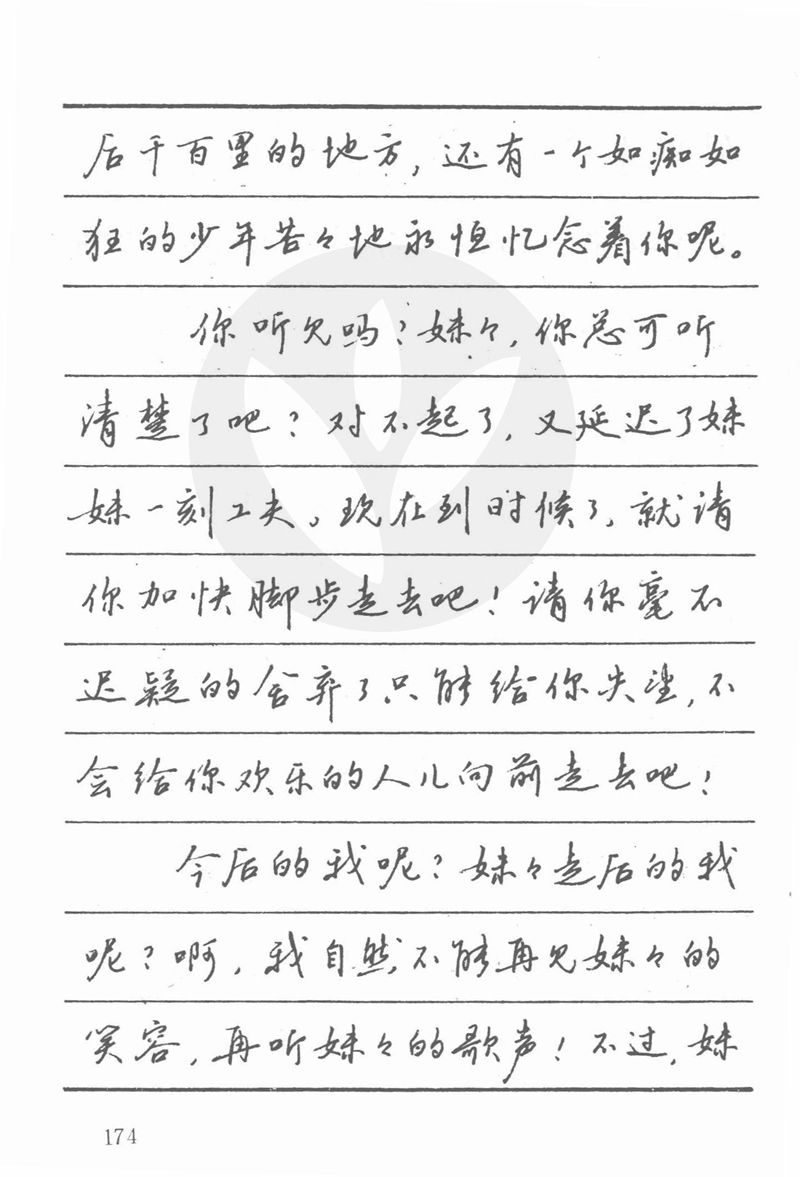 后千百里的地方，还有一个如痴如
狂的少年苦々地永恒忆念着你呢。
你听见吗？妹々，你总可听
清楚了吧？对不起了，又延迟了妹
妹一刻工夫。现在到时候了，就请
你加快脚步走去吧！请你毫不
迟疑的舍弃了只能给你失望，不
会给你欢乐的人儿向前走去吧！
今后的我呢？妹々走后的我
呢？啊，我自然不能再见妹々的
笑容，再听妹々的歌声！不过，妹
174